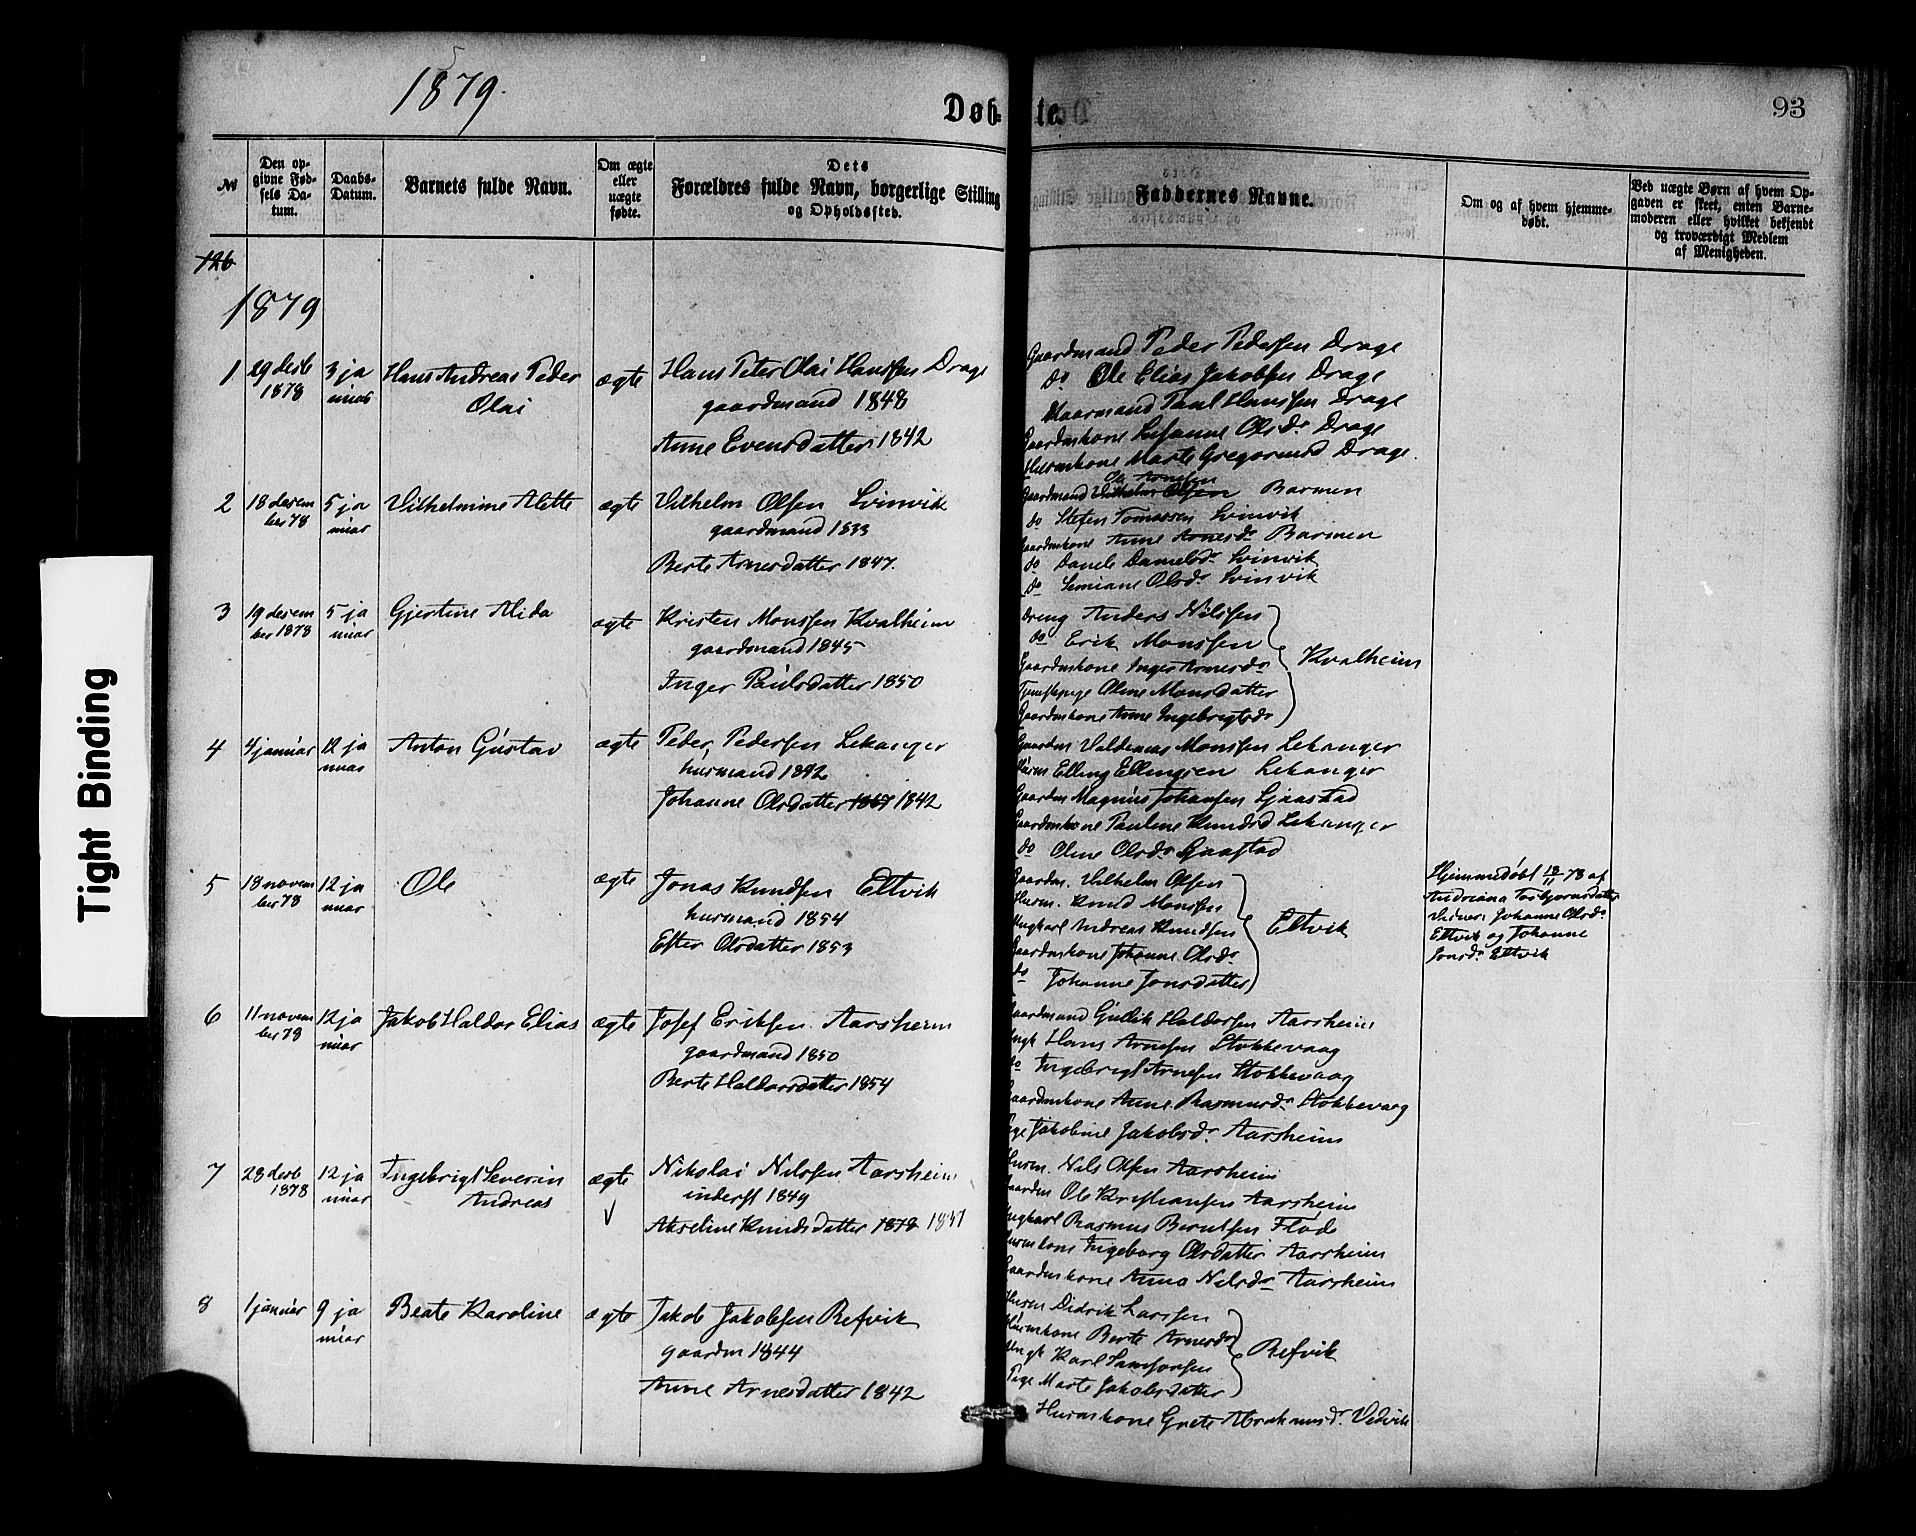 1879.
Døb-
te.
93
Tight Binding
№
Den op-
givne Fød-
sels Da-
tum.
Daabs-
Datum.
Barnets fulde Navn.
Om ægte
eller
uægte
fødte.
Dets
Forældres fulde Navn, borgerlige Stilling
og Opholdssted.
Faddernes Navne.
Om og af hvem hjemme-
døbt.
Ved uægte Børn af hvem Op-
gaven er skeet, enten Barne-
moderen eller hvilket bekjendt
og troværdigt Medlem
af Menigheden.
126
1879
1 29 desb 3 ja Hans Andreas Peder ægte Hans Peter Olai Hanssen Drage
1878 nuar Olai gaardmand 1848
Anne Evensdatter 1842
Gaardmand Peder Pedersen Drage
do Ole Elias Jakobsen Drage
Paul Hanssen Drage
Gaardmkone Olsdr Drage
Huusmkone Marte Drage.
2 18 desem 5 ja Vilhelmine Alette ægte Vilhelm Olsen Svinvik
ber 78 nuar gaardmand 1833
Berte Arnesdatter 1847.
Ole Arnesen
Gaardmand Vilhelm Olsen Barmen
do Stefen Tomassen Svinvik
Gaardmkone Anne Arnesdr Barmen
do Danele Danielsdr Svinvik
do Semiane Olsdr Svinvik
3 19 desem 5 ja Gjertine Alida ægte Kristen Monssen Kvalheim
ber 1878 nuar gaardmand 1845
Inger Paulsdatter 1850
Dreng Anders Nilssen
do Erik Monssen
Gaardmkone Inger Arnesdr Kvalheim
Oline Monsdatter
Gaardmkone Anne Ingebrigtsdr
4 4 januar 12 ja Anton Gustav ægte Peder Pedersen Lekanger
nuar husmand 1842
Johanne Olsdatter 1867 1842
Gaardm Valdemar Monssen Lekanger
Husm Elling Ellingsen Lekanger
Gaardm Magnus Johansen Sjaastad
Gaardmkone Pauline Knudsd Lekanger
do Oline Olsdr Sjaastad
5 18 novem 12 ja Ole ægte Jonas Knudsen Ettvik
ber 78 nuar husmand 1854
Ester Olsdatter 1853
Gaardm. Vilhelm Olsen
Husm. Knud Monssen
Ungkarl Andreas Knudsen Ettvik
Gaardmkone Johanne Olsdr
do Johanne Jonsdatter
Hjemmedøbt 18/11 78 af
Andriana Torbjornsdatter
Vidner: Johanne Olsdr
Ettvik og Johanne
Jonsdr Ettvik
6 11 novem 12 ja Jakob Haldor Elias ægte Josef Eriksen Aarsheim
ber 78 nuar gaardmand 1850
Berte Haldorsdatter 1854
Gaardmand Gullik Haldorsen Aarsheim
Ungk Hans Arnesen Stokkevaag
do Ingebrigt Arnesen Stokkevaag
Gaardmkone Anne Rasmusdr Stokkevaag
Pige Jakobine Jakobsdr Aarsheim
7 28 desb 12 ja Ingebrigt Severin ægte Nikolai Nilssen Aarsheim
1878 nuar Andreas inderst 1849
Akseline Knudsdatter 1878 1851
Husm. Nils Olsen Aarsheim
Gaardm Ole Kristiansen Aarsheim
Ungkarl Rasmus Berntsen Flode
Husmkone Ingeborg Olsdatter Aarsheim
Gaardmkone Anna Nilsdr Aarsheim
8 1 januar 9 ja Beate Karoline ægte Jakob Jakobsen Refvik
nuar gaardm 1844
Anne Arnesdatter 1842
Husm Didrik Larssen
Husmkone Berte Arnesdr
Ungk Karl Samsonsen Refvik
Pige Marte Jakobsdatter
Husmkone Grete Abrahamsdr. Vedvik